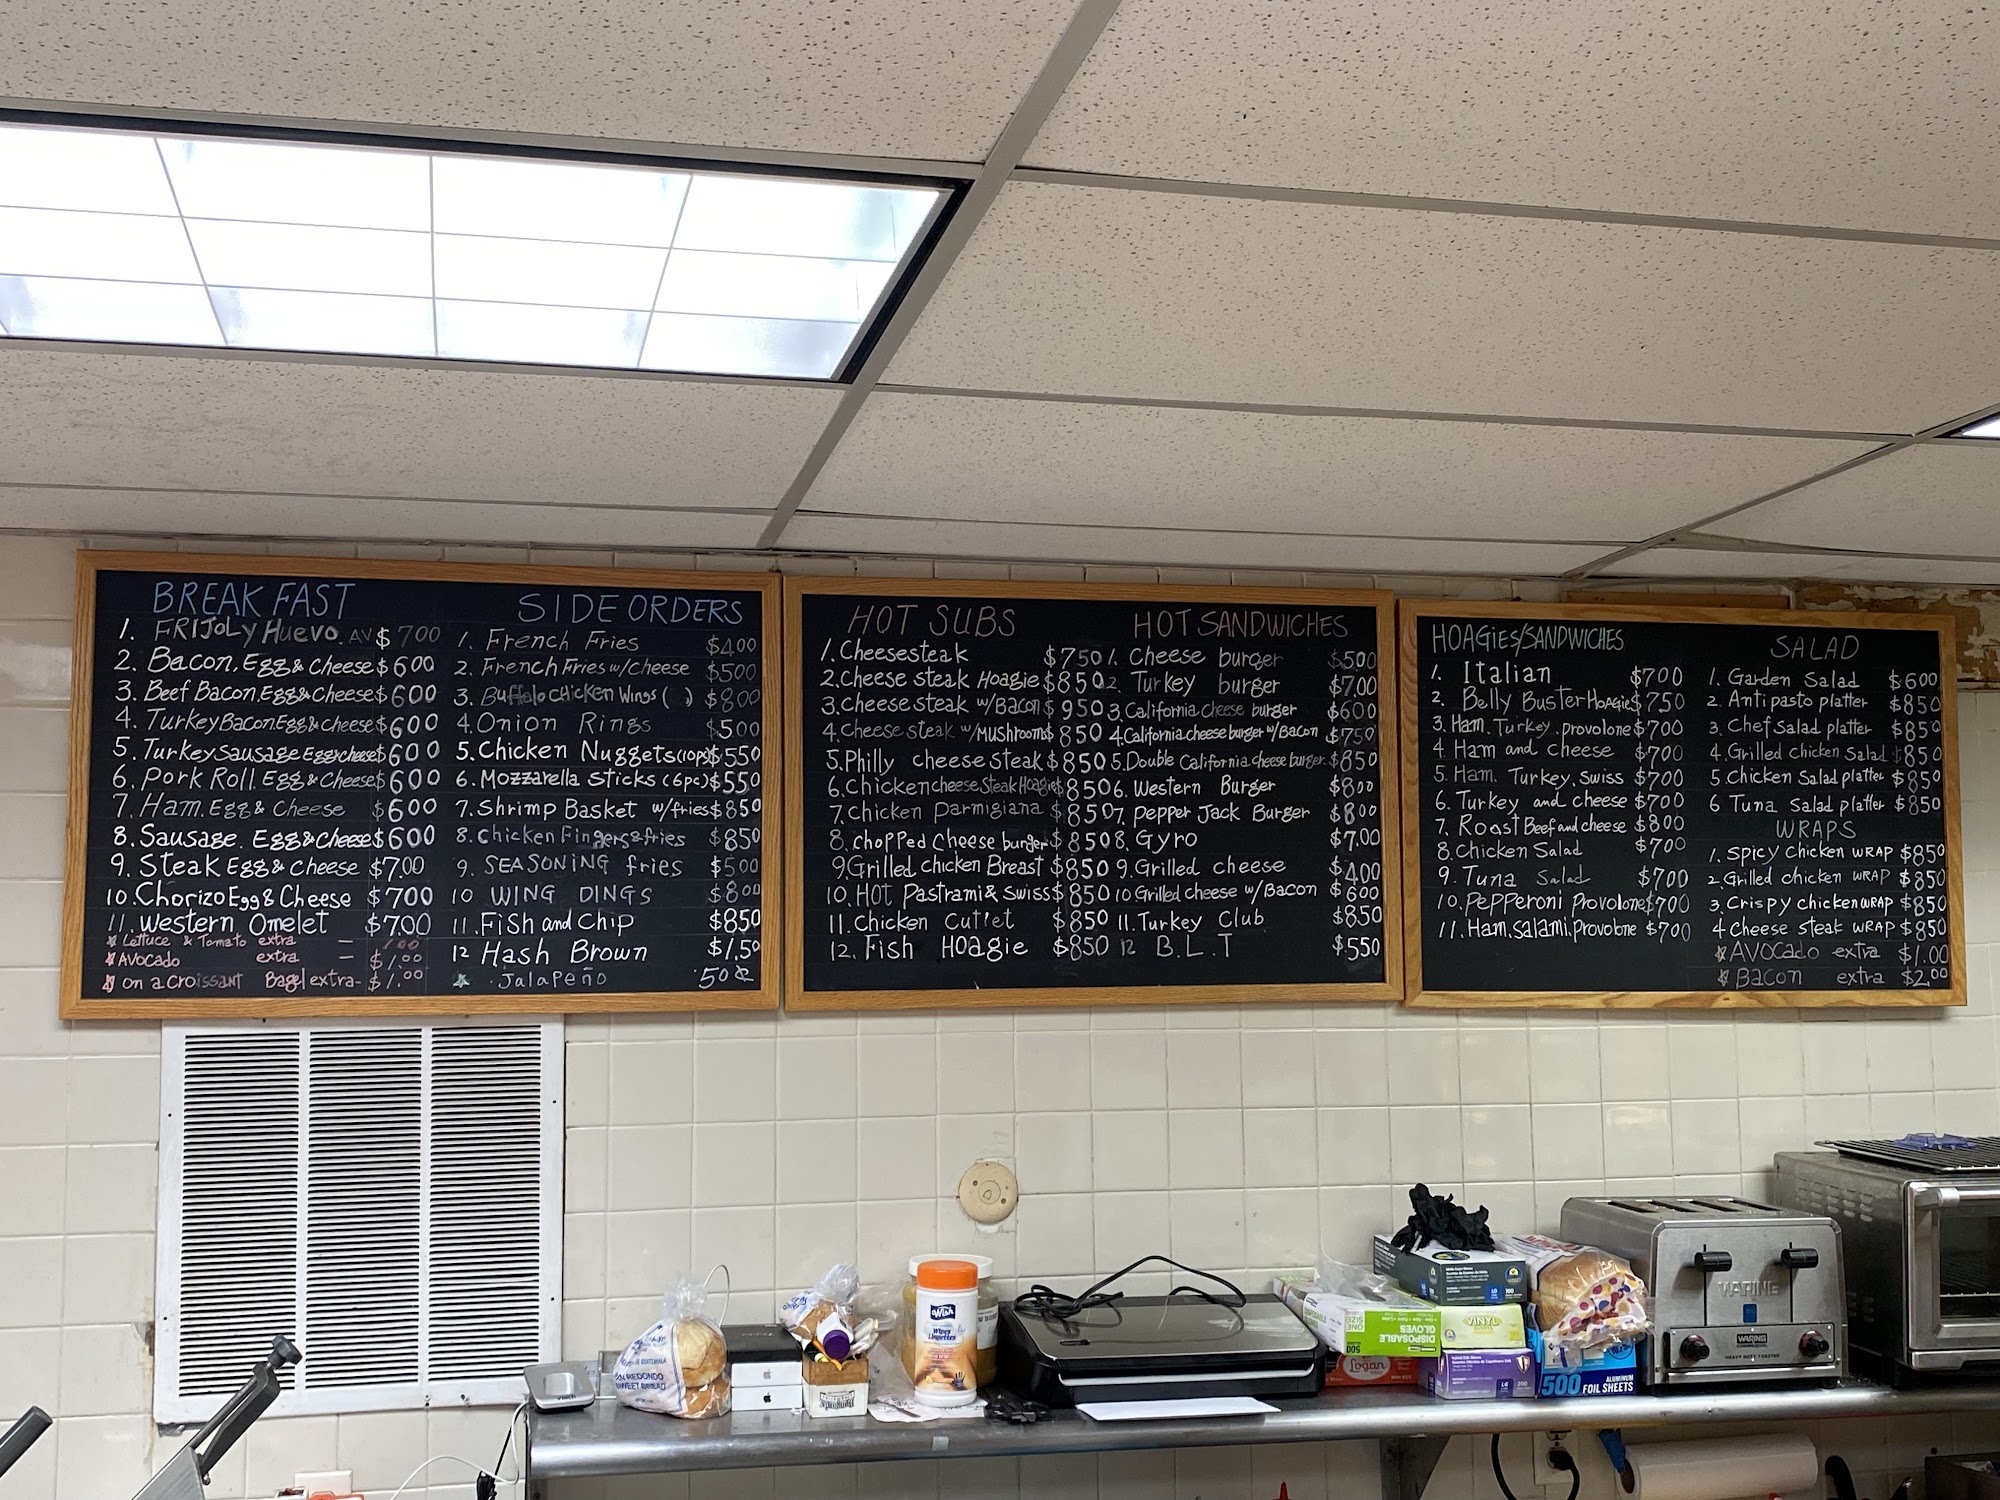 BREAKFAST
1. FRIJOL y Huevo. AV $700
2. Bacon. Egg & Cheese $600
3. Beef Bacon. Egg & Cheese $600
4. Turkey Bacon. Egg & Cheese $600
5. Turkey Sausage Egg & cheese $600
6. Pork Roll. Egg & Cheese $600
7. Ham. Egg & Cheese $600
8. Sausage. Egg & Cheese $600
9. Steak Egg & Cheese $7.00
10. Chorizo Egg & Cheese $700
11. Western Omelet $7.00
Lettuce & Tomato extra – 1.00
AVOCADO extra – $1.00
on a croissant Bagel extra - $1.00
SIDE ORDERS
1. French Fries $4.00
2. French Fries w/cheese $500
3. Buffalo chicken Wings ( ) $800
4. Onion Rings $5.00
5. Chicken Nuggets (10pc) $550
6. Mozzarella sticks (6pc) $550
7. Shrimp Basket w/fries $850
8. chicken Fingers & fries $850
9. SEASONING fries $500
10 WING DINGS $800
11. Fish and Chip $850
12 Hash Brown $1.50
Jalapeño .50¢
HOT SUBS
1. Cheesesteak $750
2. Cheese steak Hoagie $850
3. Cheese steak w/Bacon $950
4. Cheese steak w/Mushroom $850
5. Philly cheese steak $850
6. Chicken cheese Steak Hoagie $850
7. Chicken Parmigiana $850
8. chopped Cheese burger $850
9. Grilled chicken Breast $850
10. HOT Pastrami & Swiss $850
11. Chicken Cutlet $850
12. Fish Hoagie $850
HOT SANDWICHES
1. Cheese burger $500
2. Turkey burger $7.00
3. California cheese burger $600
4. California cheese burger w/Bacon $750
5. Double California cheese burger. $850
6. Western Burger $800
7. Pepper Jack Burger $800
8. Gyro $7.00
9. Grilled cheese $400
10 Grilled Cheese w/Bacon $600
11. Turkey Club $850
12 B.L.T $550
HOAGIES/SANDWICHES
1. Italian $700
2. Belly Buster Hoagie $750
3. Ham. Turkey. provolone $700
4. Ham and cheese $700
5. Ham. Turkey. swiss $700
6. Turkey and cheese $700
7. Roast Beef and cheese $800
8. Chicken Salad $700
9. Tuna Salad $700
10. Pepperoni Provolone $700
11. Ham. salami. Provolone $700
SALAD
1. Garden Salad $600
2. Antipasto platter $850
3. Chef Salad platter $850
4. Grilled chicken Salad $850
5. Chicken Salad platter $850
6 Tuna Salad platter $850
WRAPS
1. Spicy chicken WRAP $850
2. Grilled chicken WRAP $850
3. Crispy chicken WRAP $850
4 Cheese steak WRAP $850
AVOCADO extra $1.00
Bacon extra $2.00
Wish
Wipes
REDONDO
SWEET BREAD
DISPOSABLE
GLOVES
ONE SIZE
500
VINYL
fogan
500 ALUMINUM FOIL SHEETS
WARING
WARING
COMMERCIAL
HEAVY DUTY TOASTER